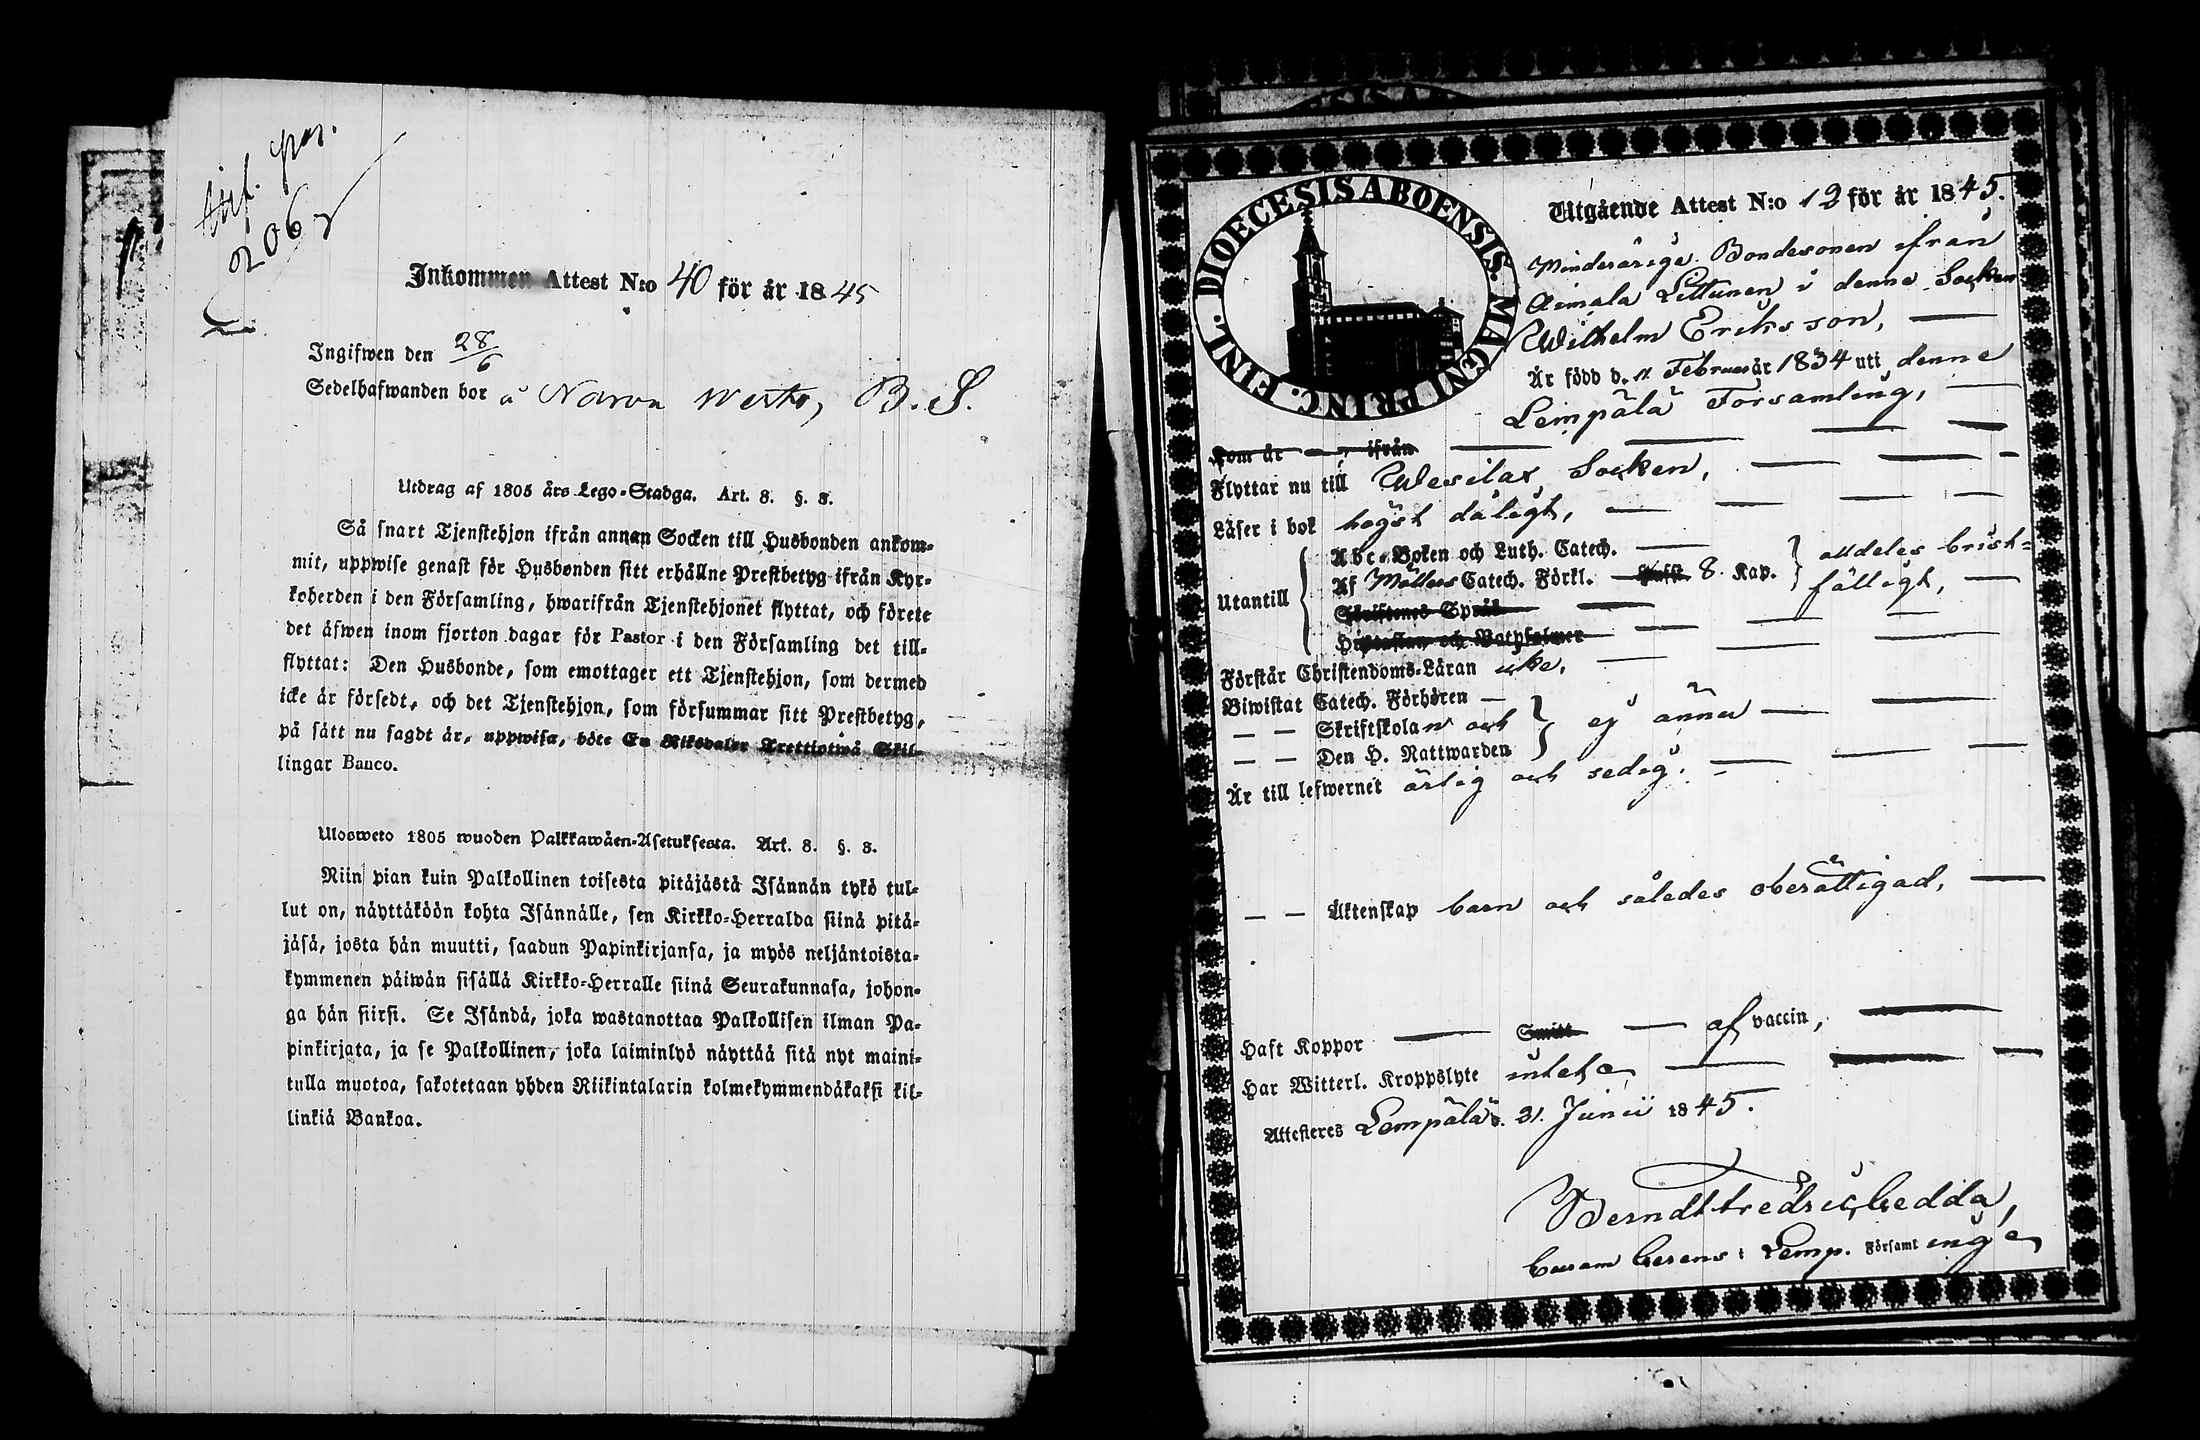 206
Inkommen Attest N:o 40 för år 1845
Ingifwen den 28/6
Sedelhafwanden bor å Narva Westo, B. S.
Utdrag af 1805 års Lego-Stadga. Art. 8. §. 8.
Så snart Tjenstehjon ifrån annan Socken till Husbonden ankom-
mit, uppwise genast för Husbonden sitt erhållne Prestbetyg ifrån Kyr-
koherden i den Församling, hwarifrån Tjenstehjonet flyttat, och förete
det äfwen inom fjorton dagar för Pastor i den Församling det till-
flyttat: Den Husbonde, som emottager ett Tjenstehjon, som dermed
icke är försedt, och det Tjenstehjon, som försummar sitt Prestbetyg,
på sätt nu sagdt är, uppwisa, böte En Riksdaler Trettiotwå Skil-
lingar Banco.
Ulosweto 1805 wuoden Palkkawäen-Asetuksesta. Art. 8. §. 8.
Niin pian kuin Palkollinen toisesta pitäjästä Isännän tykö tul-
lut on, näyttäköön kohta Isännälle, sen Kirkko-Herralda siinä pitä-
jäsä, josta hän muutti, saadun Papinkirjansa, ja myös neljäntoista-
kymmenen päiwän sisällä Kirkko-Herralle siinä Seurakunnasa, johon-
ga hän siirsi. Se Isändä, joka wastanottaa Palkollisen ilman Pa-
pinkirjata, ja se Palkollinen, joka laiminlyö näyttää sitä nyt maini-
tulla muotoa, sakotetaan yhden Riikintalarin kolmekymmendäkaksi kil-
linkiä Bankoa.
DIOECESIS ABOENSIS. MAGNI PRINC. FINL.
Utgående Attest N:o 12 för år 1845.
Minderårige Bondesonen ifrån
Aimala Littunen i denne Socken
Wilhelm Eriksson,
Är född d. 11 Februar år 1834 uti denne
Lempälä Församling,
Kom år ifrån
Flyttar nu till Wesilax Socken,
Läser i bok högst dåligt,
Utantill
Abc-Boken och Luth. Catech.
Af Möllers Catech. Förkl. 8. Kap.
alldeles brist-
fälligt,
Skriftenes Språk
Hustaflan och Botpsalmer
Förstår Christendoms-Läran icke,
Biwistat Catech. Förhören
— — Skriftskolan och
ej ännu
— — Den H. Nattwarden
Är till lefwernet ärlig och sedig.
— — Äktenskap barn och således oberättigad,
Haft Koppor Smitt af vaccin,
Har Witterl. Kroppslyte intet
Attesteres Lempälä d. 21. Junii 1845.
Berndt Fredric Gedda,
Curam Gerens i Lemp. Församling